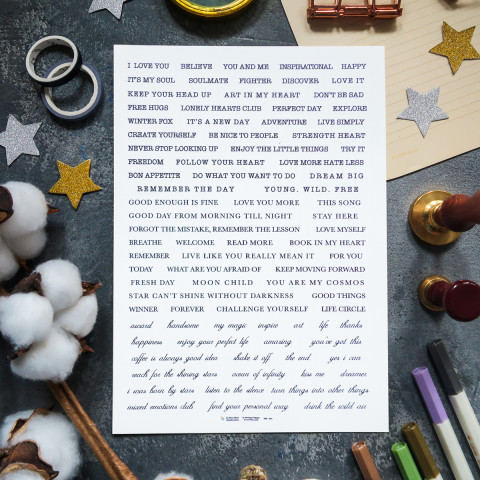 I LOVE YOU BELIEVE YOU AND ME INSPIRATIONAL HAPPY
IT'S MY SOUL SOULMATE FIGHTER DISCOVER LOVE IT
KEEP YOUR HEAD UP ART IN MY HEART DON'T BE SAD
FREE HUGS LONELY HEARTS CLUB PERFECT DAY EXPLORE
WINTER FOX IT'S A NEW DAY ADVENTURE LIVE SIMPLY
CREATE YOURSELF BE NICE TO PEOPLE STRENGTH HEART
NEVER STOP LOOKING UP ENJOY THE LITTLE THINGS TRY IT
FREEDOM FOLLOW YOUR HEART LOVE MORE HATE LESS
BON APPETITE DO WHAT YOU WANT TO DO DREAM BIG
REMEMBER THE DAY YOUNG. WILD. FREE
GOOD ENOUGH IS FINE LOVE YOU MORE THIS SONG
GOOD DAY FROM MORNING TILL NIGHT STAY HERE
FORGOT THE MISTAKE, REMEMBER THE LESSON LOVE MYSELF
BREATHE WELCOME READ MORE BOOK IN MY HEART
REMEMBER LIVE LIKE YOU REALLY MEAN IT FOR YOU
TODAY WHAT ARE YOU AFRAID OF KEEP MOVING FORWARD
FRESH DAY MOON CHILD YOU ARE MY COSMOS
STAR CAN'T SHINE WITHOUT DARKNESS GOOD THINGS
WINNER FOREVER CHALLENGE YOURSELF LIFE CIRCLE
award handsome my magic inspire art life thanks
happiness enjoy your perfect life amazing you've got this
coffee is always good idea shake it off the end yes i can
reach for the shining stars ocean of infinity kiss me dreamer
i was born by stars listen to the silence turn things into other things
mixed emotions club find your personal way drink the wild air